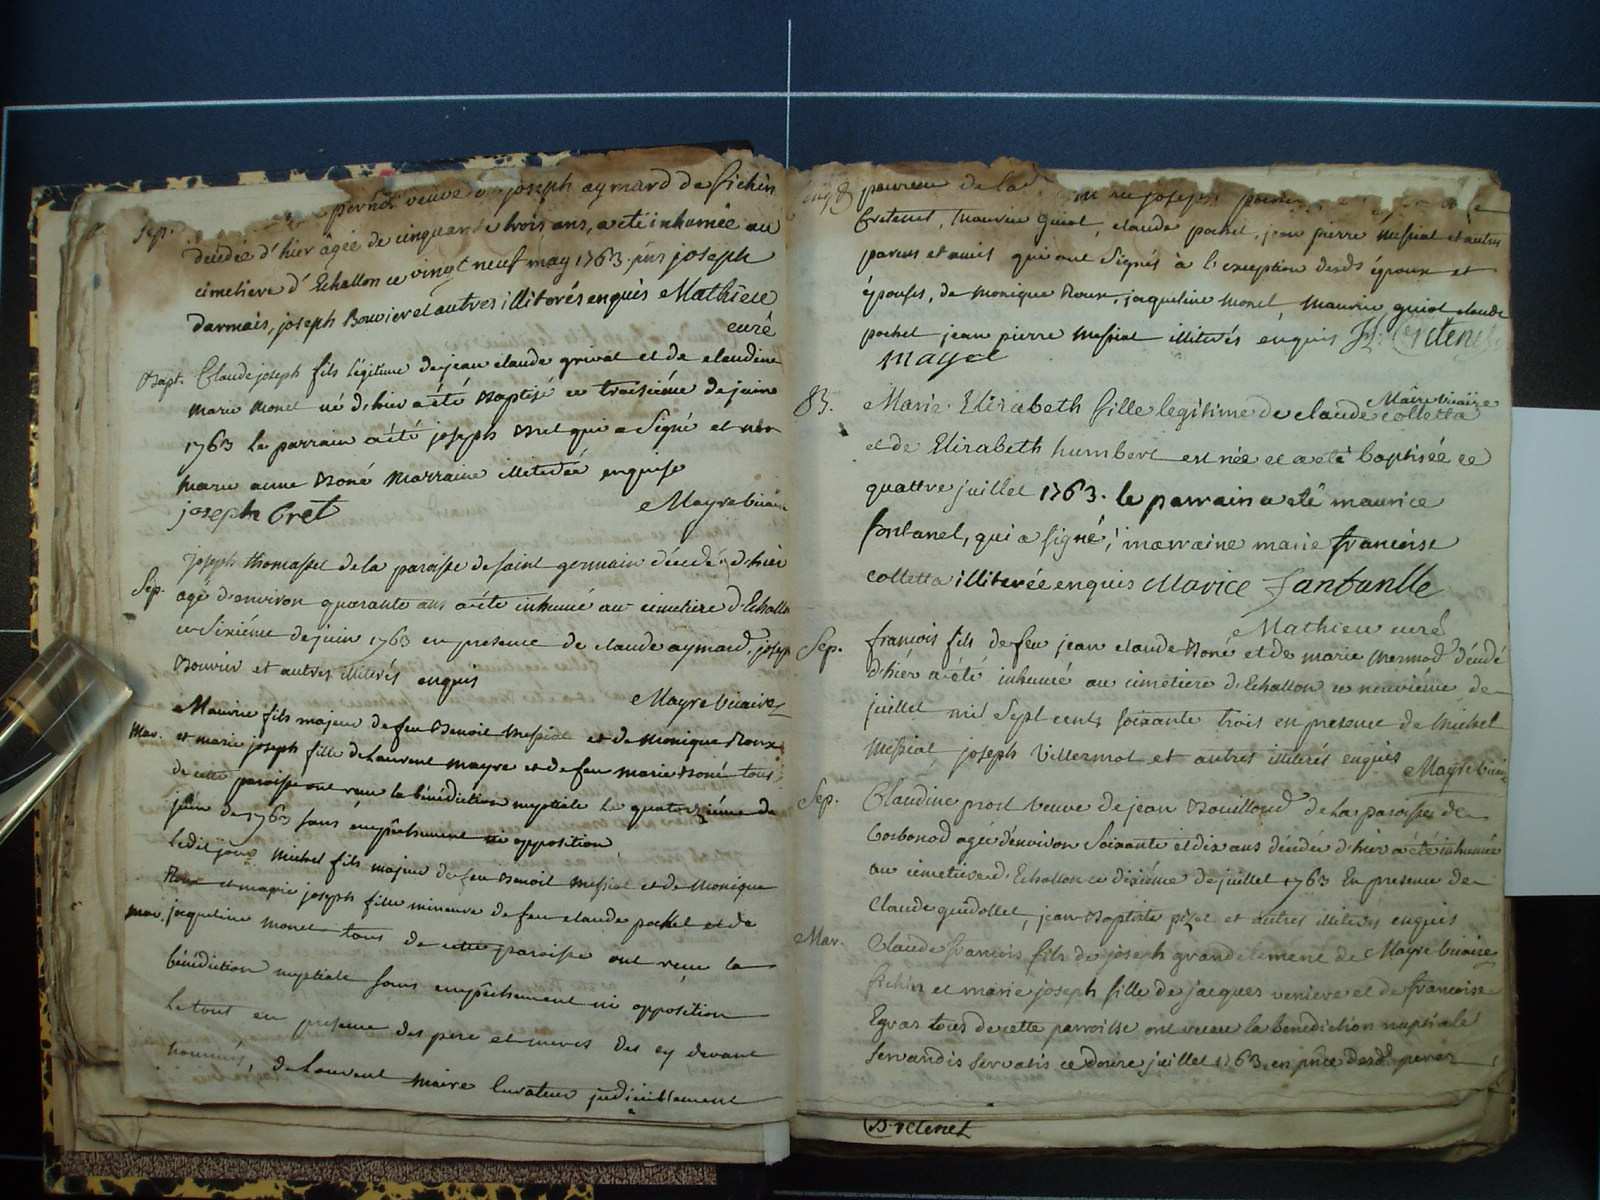 veuve joseph aymard de sichin
Sep. décédée d'hier agée de cinquante trois ans, a été inhumée au
cimetiere d'Echallon ce vingt neuf may 1763. pnts joseph
darmais, joseph Bouvier et autres illiterés enquis Mathieu
curé
Bapt. Claude joseph fils légitime de jean claude grivat et de claudine
marie monet né d'hier a été Baptisé ce troisiéme de juin
1763 le parrain a été joseph Bret qui a Signé et
marie anne Boné marraine illiterée enquise
joseph Bret Mayre vicaire
joseph thomasset de la paroisse de saint germain décédé d'hier
Sep. agé d'environ quarante ans a été inhumé au cimetiere d'Echallon
ce Sixiéme de juin 1763 en presence de claude aymard, joseph
Bouvier et autres illiterés enquis
Mayre vicaire
Maurice fils majeur de feu Benoit Messiat et de Monique Roux
Mar. et marie joseph fille de Laurent mayre et de feu marie Boné tous
de cette paroisse ont reçu la bénédiction nuptiale le quatorziéme de
juin de 1763 sans empêchement ni opposition
Ledit jour Michel fils majeur de feu Benoit Messiat et de Monique
Roux et marie joseph fille mineure de feu claude pochet et de
mar. jacqueline monet tous de cette paroisse ont reçu la
bénédiction nuptiale sans empêchement ni opposition
le tout en presence des pere et meres des cy devant
nommés, de Laurent Maire Curateur judiciellement
de la joseph
Bretenet, Maurice guiot, claude pochet, jean pierre Messiat et autres
parens et amis qui ont Signés à l'exception desds époux et
épouses, de Monique Roux, jacqueline Monet, Maurice guiot claude
pochet jean pierre Messiat illiterés enquis Bretenet
Mayre
Maire vicaire
83. Marie Elizabeth fille legitime de claude colletta
et de Elizabeth humbert est née et a eté baptisée ce
quattre juillet 1763. le parrain a eté maurice
fontanel, qui a signé, marraine marie francoise
colletta illiterée enquis Mavrice Fantanlle
Mathieu curé
Sep. françois fils de feu jean claude Boné et de marie Mermod décédé
d'hier a été inhumé au cimetiere d'Echallon ce neuvieme de
juillet mil Sept cents soixante trois en presence de Michel
Messiat, joseph Villermot et autres illiterés enquis
Mayre vicaire
Sep. Claudine prost veuve de jean Bouilloud de la paroisse de
Corbonod agée d'environ Soixante et dix ans décédée d'hier a été inhumée
au cimetiere d'Echallon ce dixiéme de juillet 1763 En presence de
Claude guidollet, jean Baptiste et autres illiterés enquis
Mar. Claude françois fils de joseph grandclement de Mayre vicaire
sichin et marie joseph fille de jacques veniere et de francoise
Egras tous de cette parroisse ont receu la benediction nuptiale
servandis servatis ce douze juillet 1763. en pnce desd. peres
Bretenet